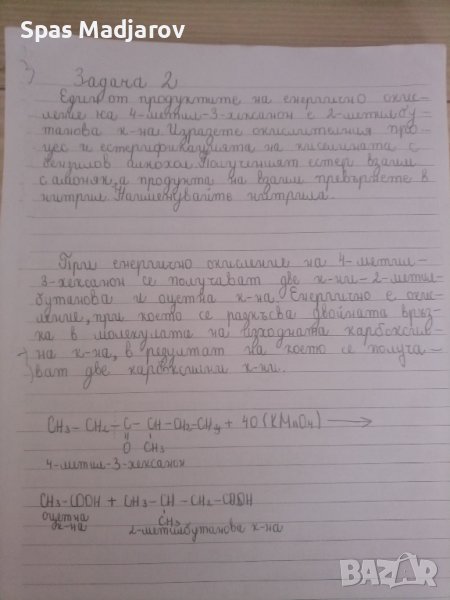 Spas Madjarov
3)
Задача 2
Един от продуктите на енергично окис-
ление на 4-метил-3-хексанон е 2-метилбу-
танова к-на. Изразете окислителния про-
цес и естерификацията на киселината с
бензилов алкохол. Полученият естер взаим.
с амоняк, а продукта на взаим. превърнете в
нитрил. Наименувайте нитрила.
При енергично окисление на 4-метил-
3-хексанон се получават две к-ни - 2-метил-
бутанова и оцетна к-на. Енергично е окис-
ление, при което се разкъсва двойната връз-
ка в молекулата на изходната карбоксил-
на к-на, в резултат на което се получа-
ват две карбоксилни к-ни.
CH3 - CH2 - C - CH - CH2 - CH3 + 4O (KMnO4) →
O CH3
4-метил-3-хексанон
CH3 - COOH + CH3 - CH - CH2 - COOH
оцетна CH3
к-на 2-метилбутанова к-на
BAZAR